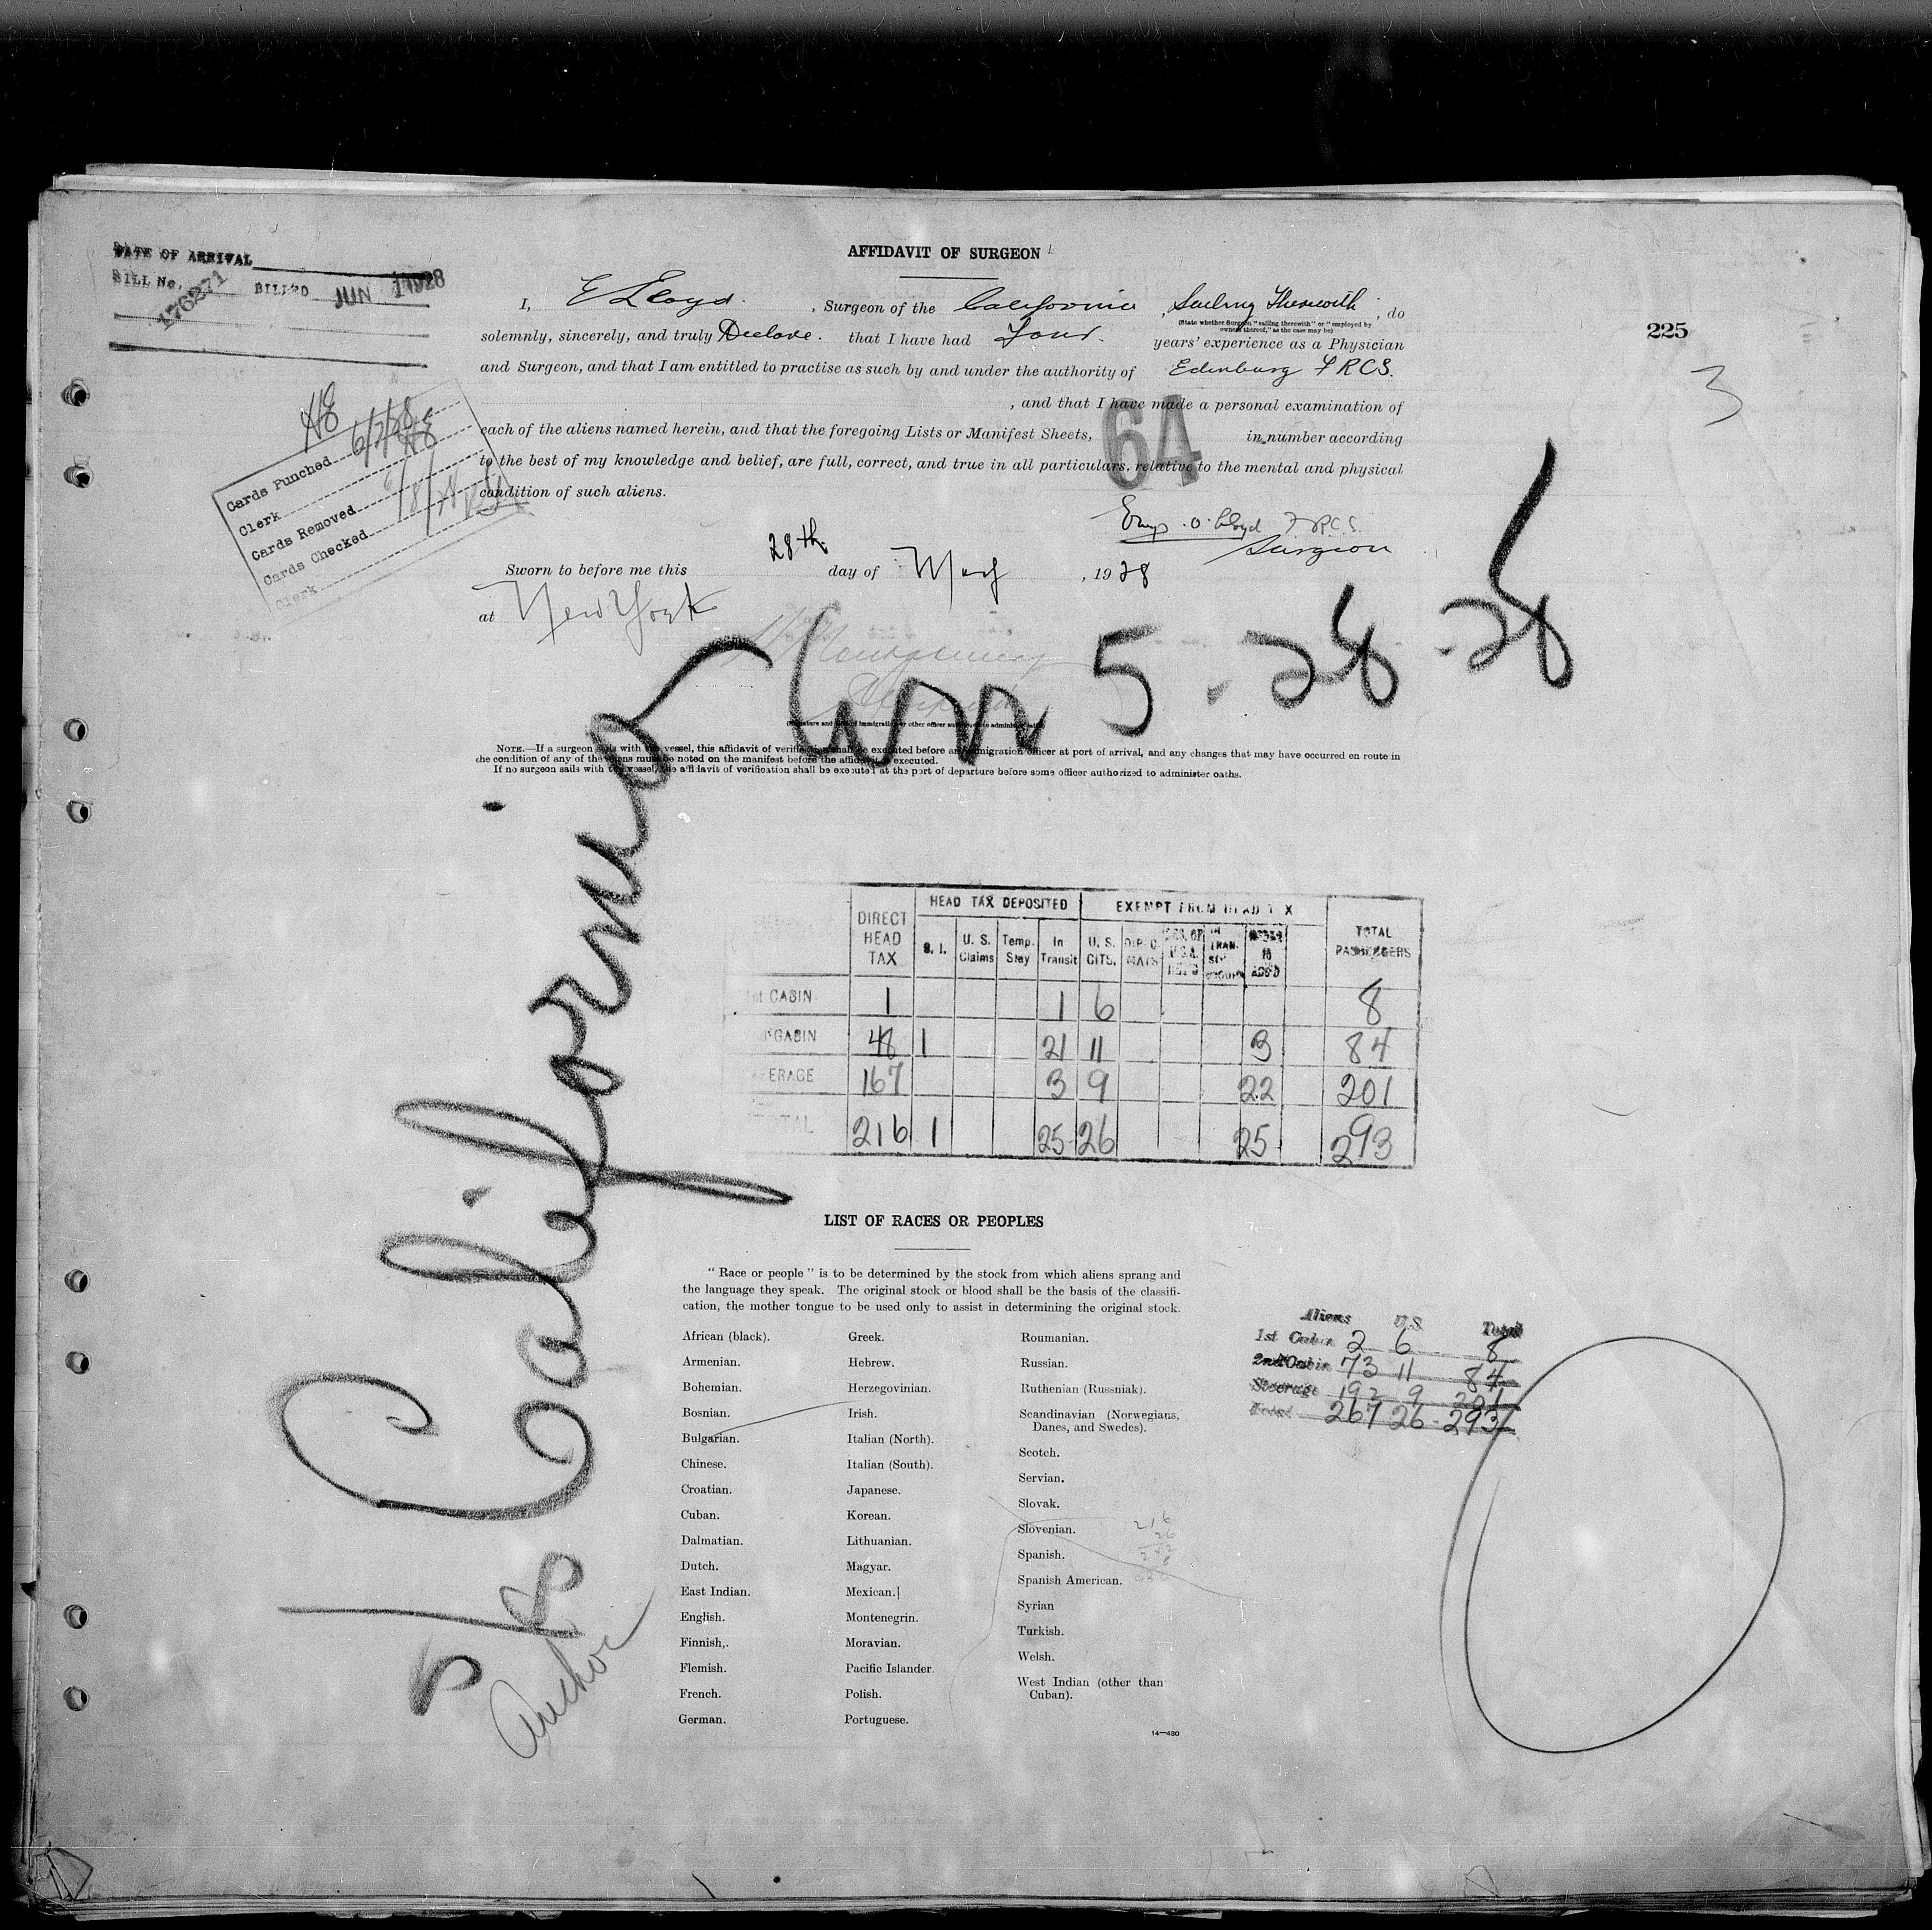 DATE OF ARRIVAL
BILL No. 176271 BILLED JUN 1 1928
AFFIDAVIT OF SURGEON
I, E Lloyd. , Surgeon of the California , Sailing Therewith , do
(State whether Surgeon "sailing therewith" or "employed by
owners thereof," as the case may be)
225
3
solemnly, sincerely, and truly Declare. that I have had Four. years' experience as a Physician
and Surgeon, and that I am entitled to practise as such by and under the authority of Edinburg FRCS.
, and that I have made a personal examination of
each of the aliens named herein, and that the foregoing Lists or Manifest Sheets, 64 in number according
to the best of my knowledge and belief, are full, correct, and true in all particulars, relative to the mental and physical
condition of such aliens.
Cards Punched 6/7/28
Clerk HE
Cards Removed
Cards Checked
Clerk
Lloyd FRCS.
Surgeon
Sworn to before me this 28th day of May , 1928
at New York
Montgomery
5-28-28
NOTE.—If a surgeon sails with the vessel, this affidavit of verification shall be executed before an immigration officer at port of arrival, and any changes that may have occurred en route in
the condition of any of the aliens must be noted on the manifest before the affidavit is executed.
If no surgeon sails with the vessel, the affidavit of verification shall be executed at the port of departure before some officer authorized to administer oaths.
S/S California
Anchor
HEAD TAX DEPOSITED EXEMPT FROM HEAD TAX
DIRECT HEAD TAX S. I. U. S. Claims Temp. Stay In Transit U. S. CITS. DIPLOMATS TOTAL PASSENGERS
1st CABIN 1 1 6 8
CABIN 48 1 21 11 3 84
STEERAGE 167 3 9 22 201
TOTAL 216 1 25 26 25 293
LIST OF RACES OR PEOPLES
"Race or people" is to be determined by the stock from which aliens sprang and
the language they speak. The original stock or blood shall be the basis of the classifi-
cation, the mother tongue to be used only to assist in determining the original stock.
African (black).
Armenian.
Bohemian.
Bosnian.
Bulgarian.
Chinese.
Croatian.
Cuban.
Dalmatian.
Dutch.
East Indian.
English.
Finnish,.
Flemish.
French.
German.
Greek.
Hebrew.
Herzegovinian.
Irish.
Italian (North).
Italian (South).
Japanese.
Korean.
Lithuanian.
Magyar.
Mexican.
Montenegrin.
Moravian.
Pacific Islander.
Polish.
Portuguese.
Roumanian.
Russian.
Ruthenian (Russniak).
Scandinavian (Norwegians,
Danes, and Swedes).
Scotch.
Servian.
Slovak.
Slovenian.
Spanish.
Spanish American.
Syrian
Turkish.
Welsh.
West Indian (other than
Cuban).
14—430
Aliens U.S. Total
1st Cabin 2 6 8
2nd Cabin 73 11 84
Steerage 192 9 201
Total 267 26 293
216
26
242